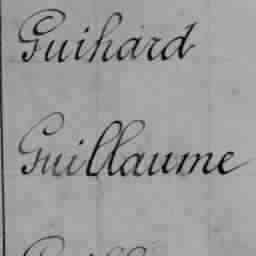 Guihard
Guillaume